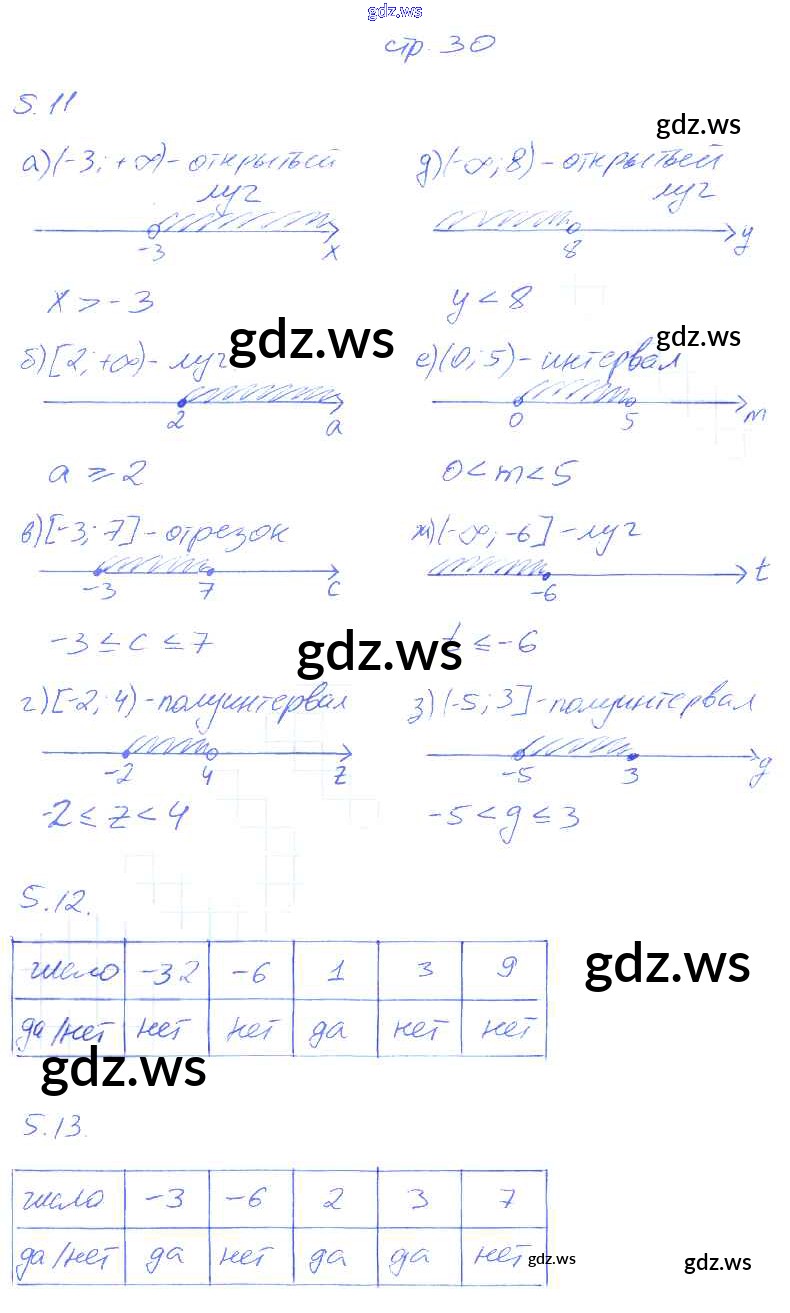 gdz.ws
стр. 30
5.11
gdz.ws
а) (-3; +∞) - открытый
луч
-3
x
x > -3
д) (-∞; 8) - открытый
луч
8
y
y < 8
gdz.ws
gdz.ws
б) [2; +∞) - луч
2
a
a ⩾ 2
е) (0; 5) - интервал
0 5
m
0 < m < 5
в) [-3; 7] - отрезок
-3 7
c
-3 ≤ c ≤ 7
ж) (-∞; -6] - луч
-6
t
t ≤ -6
gdz.ws
г) [-2; 4) - полуинтервал
-2 4
z
-2 ≤ z < 4
з) (-5; 3] - полуинтервал
-5 3
g
-5 < g ≤ 3
5.12.
число -32 -6 1 3 9
да/нет нет нет да нет нет
gdz.ws
gdz.ws
5.13.
число -3 -6 2 3 7
да/нет да нет да да нет
gdz.ws
gdz.ws